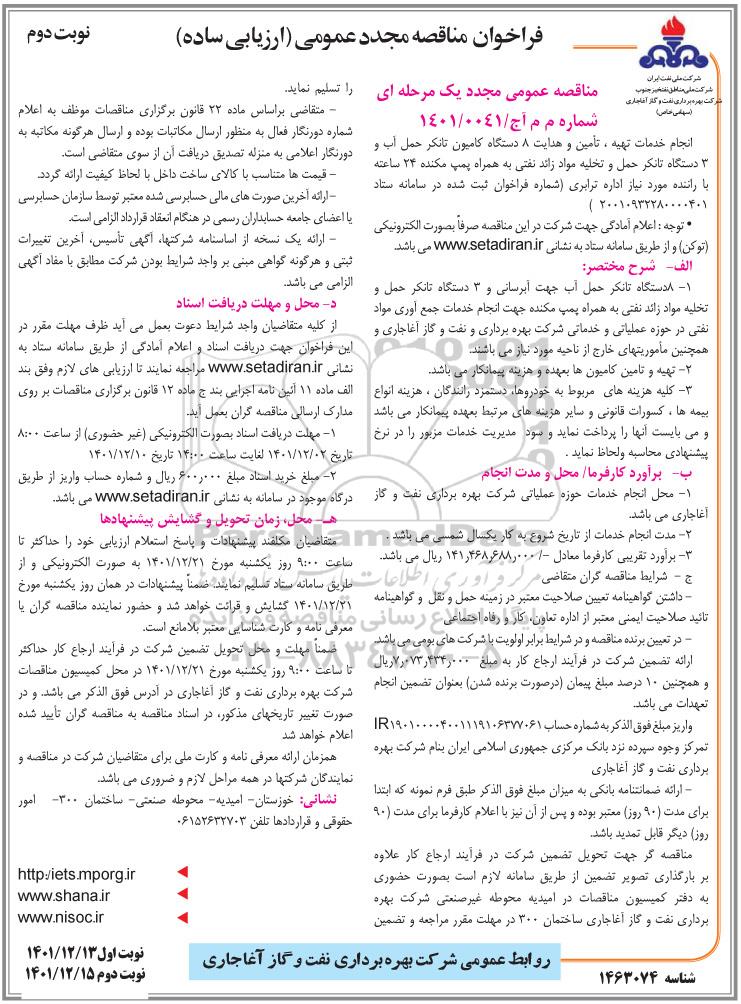 فراخوان مناقصه مجدد عمومی (ارزیابی ساده)
نوبت دوم
شرکت ملی نفت ایران
شرکت ملی مناطق نفتخیز جنوب
شرکت بهره برداری نفت و گاز آغاجاری
(سهامی خاص)
مناقصه عمومی مجدد یک مرحله ای
شماره م م آج/۱۴۰۱/۰۰۴۱
انجام خدمات تهیه ، تأمین و هدایت ۸ دستگاه کامیون تانکر حمل آب و
۳ دستگاه تانکر حمل و تخلیه مواد زائد نفتی به همراه پمپ مکنده ۲۴ ساعته
با راننده مورد نیاز اداره ترابری (شماره فراخوان ثبت شده در سامانه ستاد
۲۰۰۱۰۹۳۲۲۸۰۰۰۴۰۱ )
* توجه : اعلام آمادگی جهت شرکت در این مناقصه صرفاً بصورت الکترونیکی
(توکن) و از طریق سامانه ستاد به نشانی www.setadiran.ir می باشد.
الف- شرح مختصر:
۱- ۸دستگاه تانکر حمل آب جهت آبرسانی و ۳ دستگاه تانکر حمل و
تخلیه مواد زائد نفتی به همراه پمپ مکنده جهت انجام خدمات جمع آوری مواد
نفتی در حوزه عملیاتی و خدماتی شرکت بهره برداری و نفت و گاز آغاجاری و
همچنین مأموریتهای خارج از ناحیه مورد نیاز می باشند.
۲- تهیه و تامین کامیون ها بعهده و هزینه پیمانکار می باشد.
۳- کلیه هزینه های مربوط به خودروها، دستمزد رانندگان ، هزینه انواع
بیمه ها ، کسورات قانونی و سایر هزینه های مرتبط بعهده پیمانکار می باشد
و می بایست آنها را پرداخت نماید و سود مدیریت خدمات مزبور را در نرخ
پیشنهادی محاسبه ولحاظ نماید .
ب- برآورد کارفرما/ محل و مدت انجام
۱- محل انجام خدمات حوزه عملیاتی شرکت بهره برداری نفت و گاز
آغاجاری می باشد.
۲- مدت انجام خدمات از تاریخ شروع به کار یکسال شمسی می باشد .
۳- برآورد تقریبی کارفرما معادل -/۱۴۱٫۴۶۸٫۶۸۸٫۰۰۰ ریال می باشد.
ج - شرایط مناقصه گران متقاضی
- داشتن گواهینامه تعیین صلاحیت معتبر در زمینه حمل و نقل و گواهینامه
تائید صلاحیت ایمنی معتبر از اداره تعاون، کار و رفاه اجتماعی
- در تعیین برنده مناقصه و در شرایط برابر اولویت با شرکت های بومی می باشد.
ارائه تضمین شرکت در فرآیند ارجاع کار به مبلغ ۷٫۰۷۳٫۴۳۴٫۰۰۰ ریال
و همچنین ۱۰ درصد مبلغ پیمان (درصورت برنده شدن) بعنوان تضمین انجام
تعهدات می باشد.
واریز مبلغ فوق الذکر به شماره حساب IR۱۹۰۱۰۰۰۰۴۰۰۱۱۱۹۱۰۶۳۷۷۰۶۱
تمرکز وجوه سپرده نزد بانک مرکزی جمهوری اسلامی ایران بنام شرکت بهره
برداری نفت و گاز آغاجاری
- ارائه ضمانتنامه بانکی به میزان مبلغ فوق الذکر طبق فرم نمونه که ابتدا
برای مدت (۹۰ روز) معتبر بوده و پس از آن نیز با اعلام کارفرما برای مدت (۹۰
روز) دیگر قابل تمدید باشد.
مناقصه گر جهت تحویل تضمین شرکت در فرآیند ارجاع کار علاوه
بر بارگذاری تصویر تضمین از طریق سامانه لازم است بصورت حضوری
به دفتر کمیسیون مناقصات در امیدیه محوطه غیرصنعتی شرکت بهره
برداری نفت و گاز آغاجاری ساختمان ۳۰۰ در مهلت مقرر مراجعه و تضمین
را تسلیم نماید.
- متقاضی براساس ماده ۲۲ قانون برگزاری مناقصات موظف به اعلام
شماره دورنگار فعال به منظور ارسال مکاتبات بوده و ارسال هرگونه مکاتبه به
دورنگار اعلامی به منزله تصدیق دریافت آن از سوی متقاضی است.
- قیمت ها متناسب با کالای ساخت داخل با لحاظ کیفیت ارائه گردد.
-ارائه آخرین صورت های مالی حسابرسی شده معتبر توسط سازمان حسابرسی
یا اعضای جامعه حسابداران رسمی در هنگام انعقاد قرارداد الزامی است.
- ارائه یک نسخه از اساسنامه شرکتها، آگهی تأسیس، آخرین تغییرات
ثبتی و هرگونه گواهی مبنی بر واجد شرایط بودن شرکت مطابق با مفاد آگهی
الزامی می باشد.
د- محل و مهلت دریافت اسناد
از کلیه متقاضیان واجد شرایط دعوت بعمل می آید ظرف مهلت مقرر در
این فراخوان جهت دریافت اسناد و اعلام آمادگی از طریق سامانه ستاد به
نشانی www.setadiran.ir مراجعه نمایند تا ارزیابی های لازم وفق بند
الف ماده ۱۱ آئین نامه اجرایی بند ج ماده ۱۲ قانون برگزاری مناقصات بر روی
مدارک ارسالی مناقصه گران بعمل آید.
۱- مهلت دریافت اسناد بصورت الکترونیکی (غیر حضوری) از ساعت ۸:۰۰
تاریخ ۱۴۰۱/۱۲/۰۲ لغایت ساعت ۱۴:۰۰ تاریخ ۱۴۰۱/۱۲/۱۰
۲- مبلغ خرید اسناد مبلغ ۶۰۰٫۰۰۰ ریال و شماره حساب واریز از طریق
درگاه موجود در سامانه به نشانی www.setadiran.ir می باشد.
هـ- محل، زمان تحویل و گشایش پیشنهادها
متقاضیان مکلفند پیشنهادات و پاسخ استعلام ارزیابی خود را حداکثر تا
ساعت ۹:۰۰ روز یکشنبه مورخ ۱۴۰۱/۱۲/۲۱ به صورت الکترونیکی و از
طریق سامانه ستاد تسلیم نمایند. ضمناً پیشنهادات در همان روز یکشنبه مورخ
۱۴۰۱/۱۲/۲۱ گشایش و قرائت خواهد شد و حضور نماینده مناقصه گران یا
معرفی نامه و کارت شناسایی معتبر بلامانع است.
ضمناً مهلت و محل تحویل تضمین شرکت در فرآیند ارجاع کار حداکثر
تا ساعت ۹:۰۰ روز یکشنبه مورخ ۱۴۰۱/۱۲/۲۱ در محل کمیسیون مناقصات
شرکت بهره برداری نفت و گاز آغاجاری در آدرس فوق الذکر می باشد. و در
صورت تغییر تاریخهای مذکور، در اسناد مناقصه به مناقصه گران تأیید شده
اعلام خواهد شد
همزمان ارائه معرفی نامه و کارت ملی برای متقاضیان شرکت در مناقصه و
نمایندگان شرکتها در همه مراحل لازم و ضروری می باشد.
نشانی: خوزستان- امیدیه- محوطه صنعتی- ساختمان ۳۰۰- امور
حقوقی و قراردادها تلفن ۰۶۱۵۲۶۳۲۷۰۳
http:/iets.mporg.ir
www.shana.ir
www.nisoc.ir
روابط عمومی شرکت بهره برداری نفت و گاز آغاجاری
شناسه ۱۴۶۳۰۷۴
نوبت اول ۱۴۰۱/۱۲/۱۳
نوبت دوم ۱۴۰۱/۱۲/۱۵